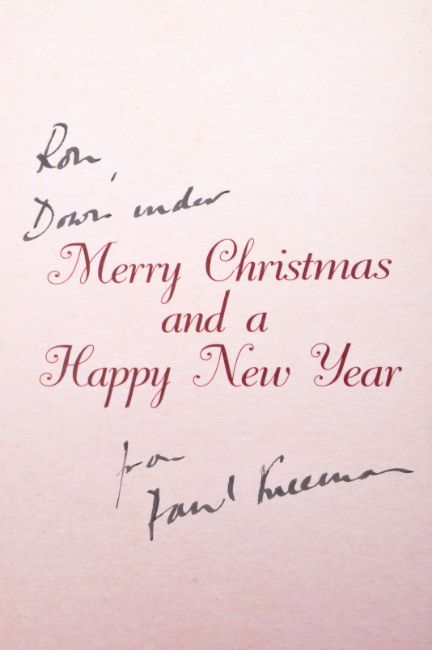 Ron,
Down under
Merry Christmas
and a
Happy New Year
from
Paul Freeman